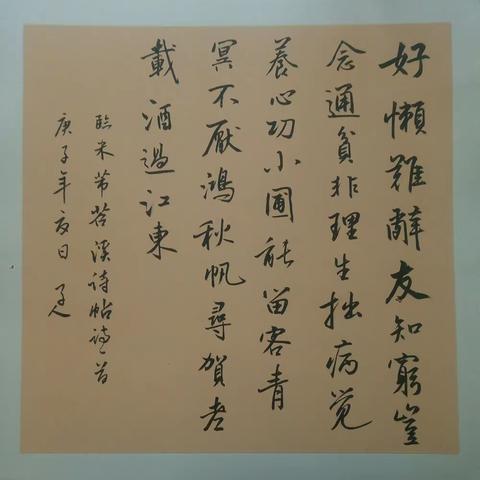 好懶難辭友知窮豈
念通貧非理生拙病覚
養心功小圃能留客青
冥不厭鴻秋帆尋賀老
載酒過江東
臨米芾苕溪诗帖诗一首
庚子年夏日